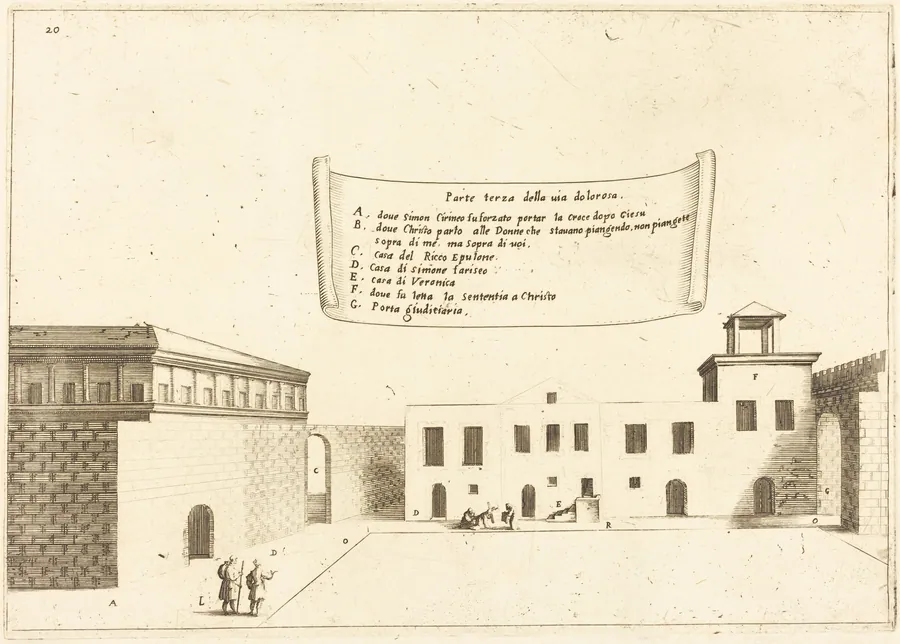 20
Parte terza della uia dolorosa.
A. doue Simon Cirineo fu forzato portar la croce dopo Giesu
B. doue Christo parlo alle Donne che stauano piangendo, non piangete
sopra di me, ma sopra di uoi.
C. Casa del Ricco Epulone.
D. Casa di Simone fariseo
E. casa di Veronica
F. doue fu letta la Sententia a Christo
G. Porta giudiciaria.
F
C
G
D
E
R
O
O
D
L
A